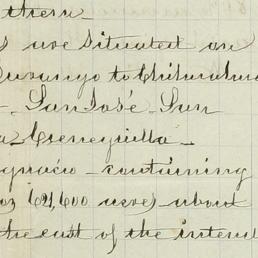 thern
are situated on
Durango to Chihuahua
San José - San
Cieneguilla -
gnacio - containing
or 64,600 acres - about
the east of the intend